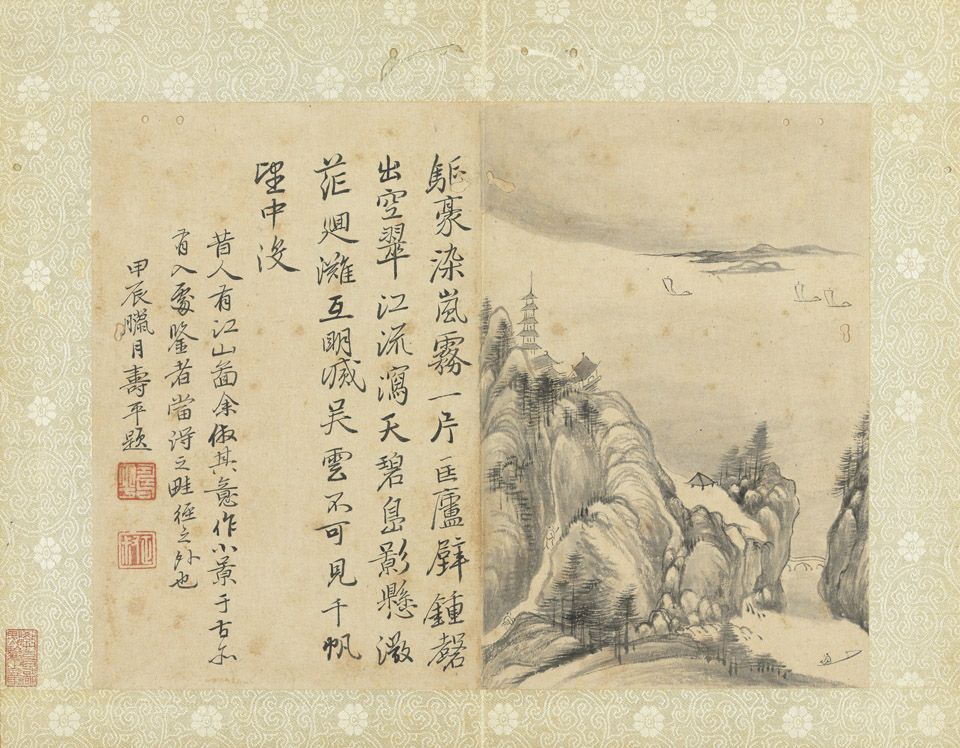 驅豪染嵐霧一片匡廬辟鍾磬
出空翠江流瀉天碧島影懸微
茫迴灘互明滅吳雲不可見千帆
望中没
昔人有江山啚余倣其意作小景于古亦
有入處鑒者當得之畦徑之外也
甲辰臘月壽平題